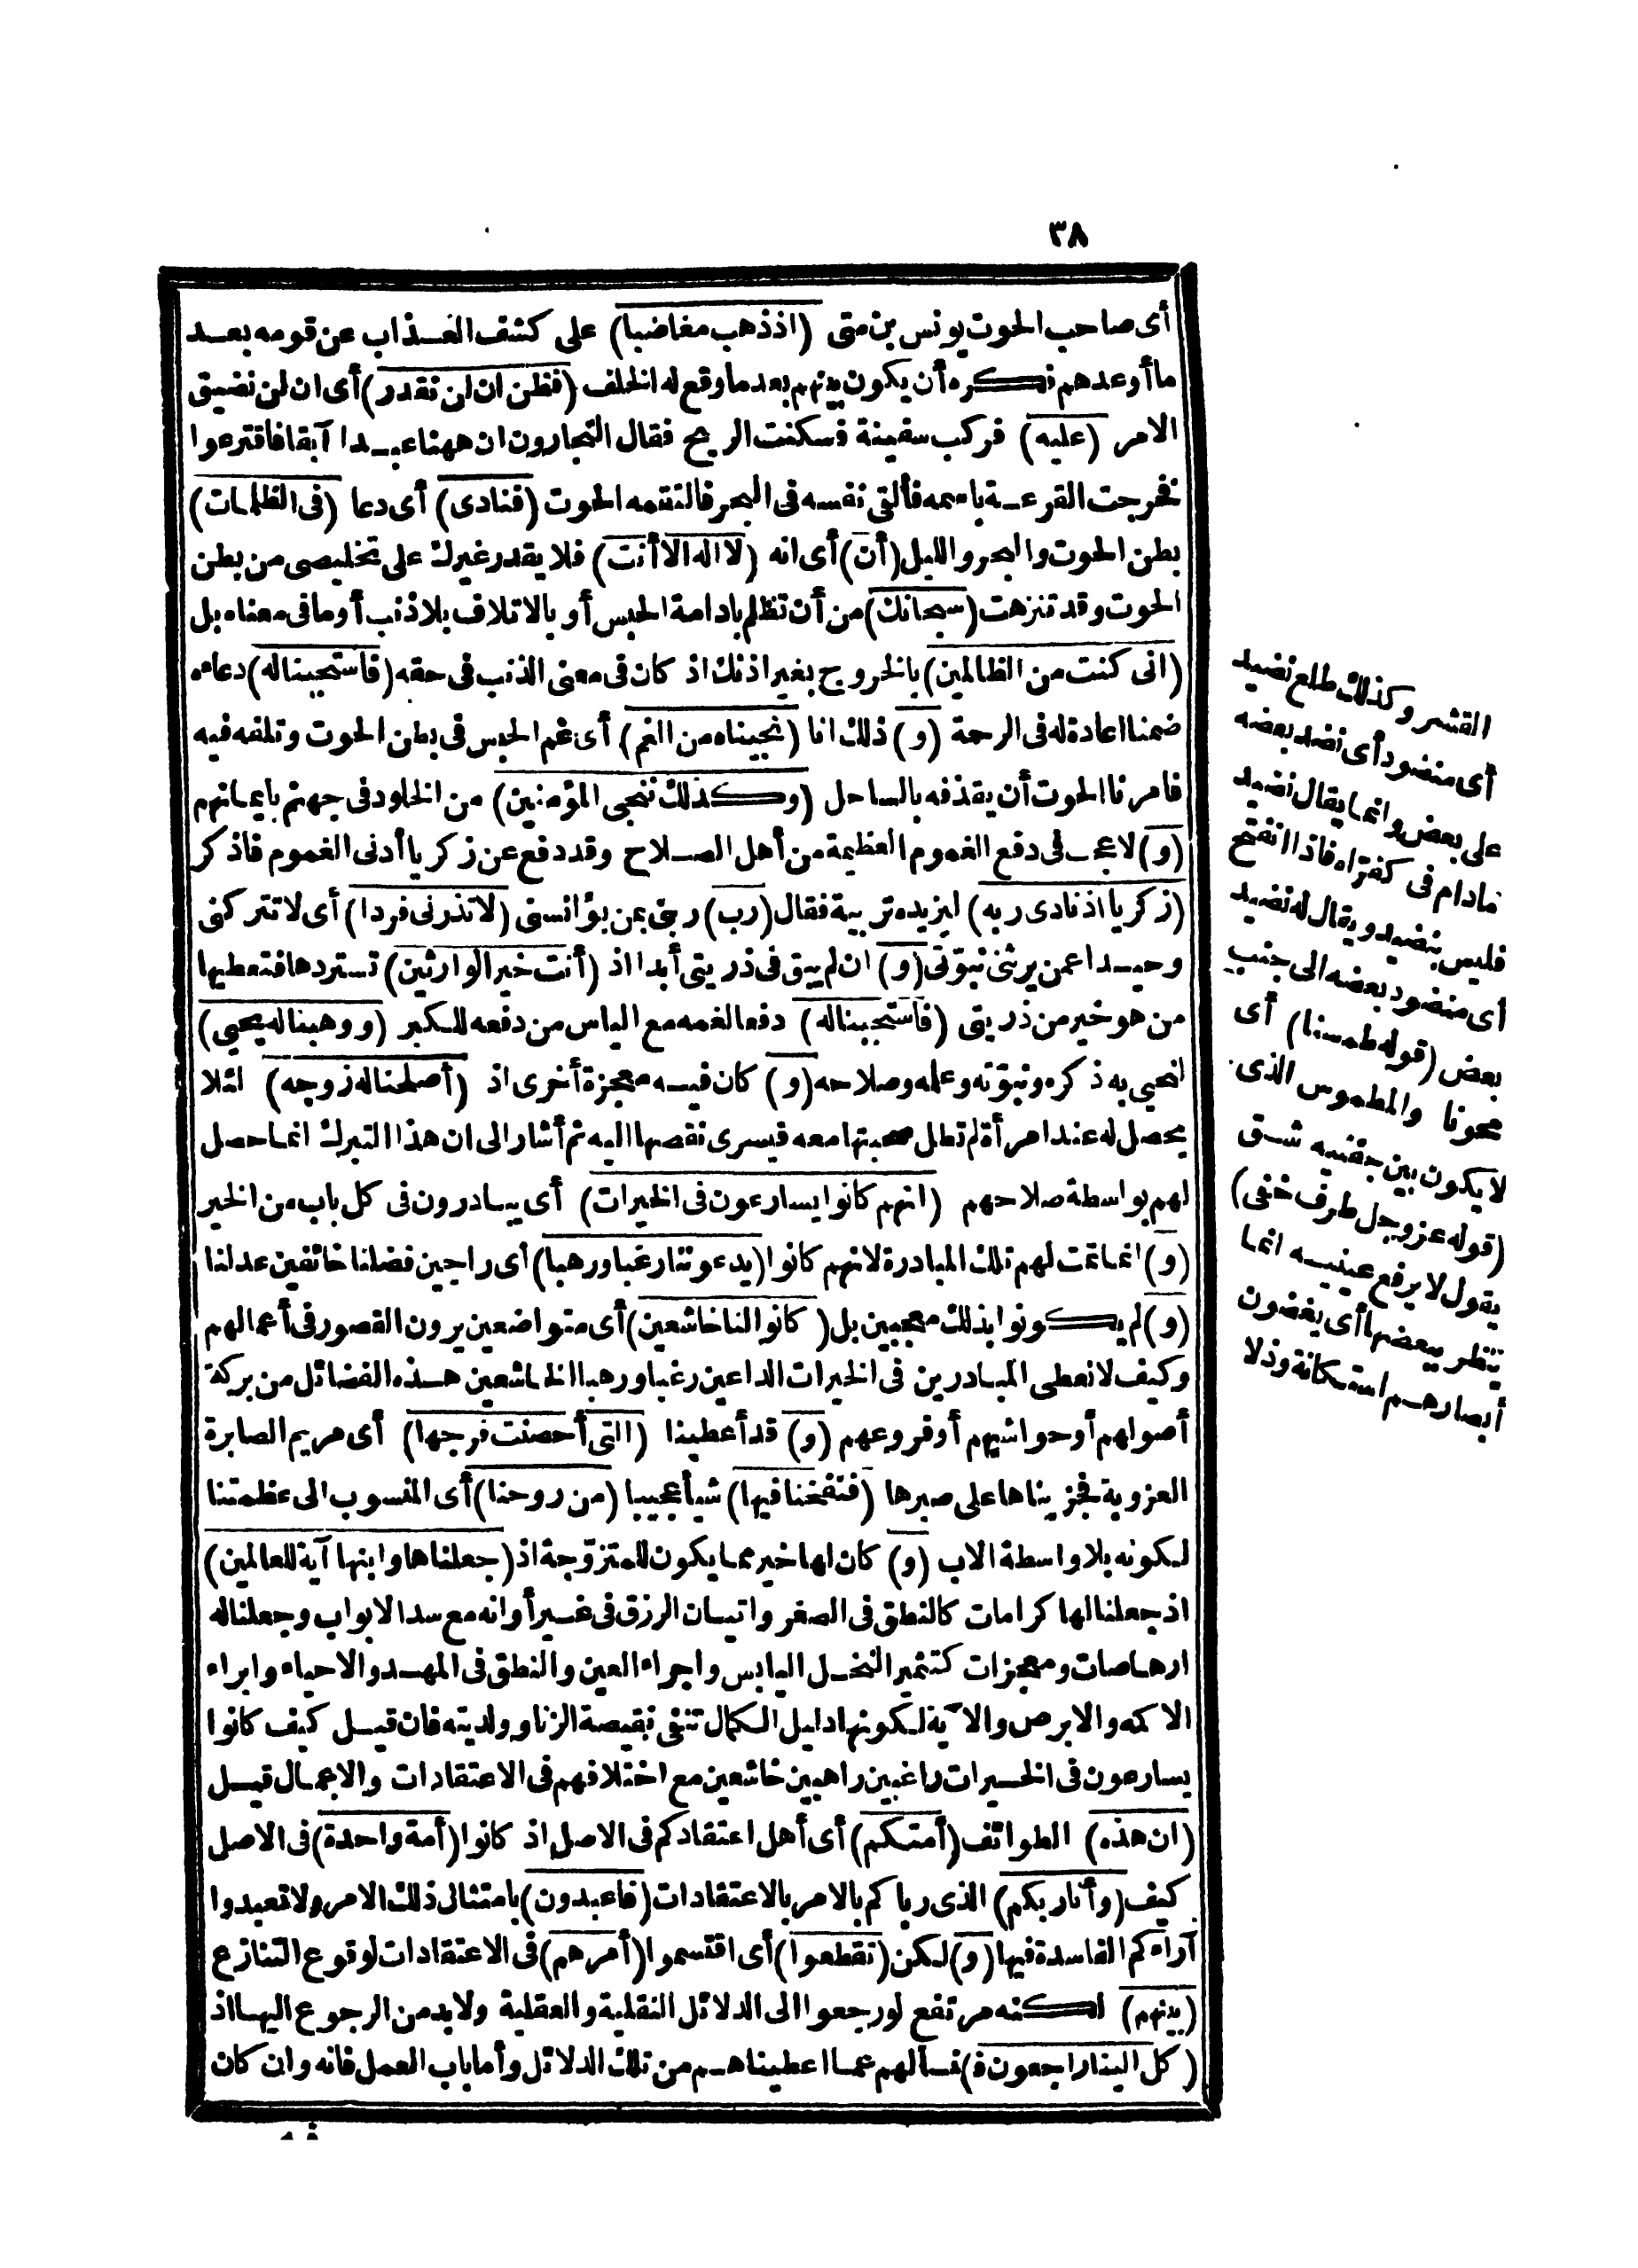 ٣٨
أى صاحب الحوت يونس بن متى (اذ ذهب مغاضبا) على كشف العذاب عن قومه بعد
ما أوعدهم فكره أن يكون بينهم بعد ما وقع له الخلف (فظن ان لن نقدر) أى ان لن نضيق
الامر (عليه) فركب سفينة فسكنت الريح فقال التجارون ان ههنا عبدا آبقا فاقترعوا
فخرجت القرعة باسمه فألقى نفسه فى البحر فالتقمه الحوت (فنادى) أى دعا (فى الظلمات)
بطن الحوت والبحر والليل (أن) أى انه (لا اله الا أنت) فلا يقدر غيرك على تخليصى من بطن
الحوت وقد تنزهت (سبحانك) من أن تظلم بادامة الحبس أو بالاتلاف بلا ذنب أو ما فى معناه بل
(انى كنت من الظالمين) بالخروج بغير اذنك اذ كان فى معنى الذنب فى حقه (فاستجبنا له) دعاءه
ضمنا اعادة له فى الرحمة (و) ذلك انا (نجيناه من الغم) أى غم الحبس فى بطن الحوت وتلفه فيه
فامرنا الحوت أن يقذفه بالساحل (وكذلك ننجى المؤمنين) من الخلود فى جهنم بايمانهم
(و) لا عجب فى دفع الغموم العظيمة من أهل الصلاح وقد دفع عن زكريا أدنى الغموم فاذكر
(زكريا اذ نادى ربه) ليزيده تربية فقال (رب) ربنى بمن يؤانسنى (لا تذرنى فردا) أى لا تتركنى
وحيدا عمن يرثنى نبوّتى (و) ان لم يبق فى ذريتى أبدا اذ (أنت خير الوارثين) تستردها فتعطيها
من هو خير من ذريتى (فاستجبنا له) دفعا لغمه مع الياس من دفعه للكبر (ووهبنا له يحيى)
لنحيى به ذكره ونبوّته وعلمه وصلاحه (و) كان فيه معجزة أخرى اذ (أصلحنا له زوجه) لئلا
يحصل له عند امرأة لم تطل صحبتها معه فيسرى نقصها اليه ثم أشار الى ان هذا التبرك انما حصل
لهم بواسطة صلاحهم (انهم كانوا يسارعون فى الخيرات) أى يبادرون فى كل باب من الخير
(و) انما تمت لهم تلك المبادرة لانهم كانوا (يدعوننا رغبا ورهبا) أى راجين فضلنا خائفين عدلنا
(و) لم يكونوا بذلك معجبين بل (كانوا لنا خاشعين) أى متواضعين يرون القصور فى أعمالهم
وكيف لا نعطى المبادرين فى الخيرات الداعين رغبا ورهبا الخاشعين هذه الفضائل من بركة
أصولهم أو حواشيهم أو فروعهم (و) قد أعطينا (التى أحصنت فرجها) أى مريم الصابرة
العزوبة فجزيناها على صبرها (فنفخنا فيها) شيأ عجيبا (من روحنا) أى المنسوب الى عظمتنا
لكونه بلا واسطة الاب (و) كان لها خير مما يكون للمتزوّجة اذ (جعلناها وابنها آية للعالمين)
اذ جعلنا لها كرامات كالنطق فى الصغر واتيان الرزق فى غير أوانه مع سد الابواب وجعلنا له
ارهاصات ومعجزات كتثمير النخل اليابس واجراء العين والنطق فى المهد والاحياء وابراء
الاكمه والابرص والآية لكونها دليل الكمال تنفى نقيصة الزنا وولديته فان قيل كيف كانوا
يسارعون فى الخيرات راغبين راهبين خاشعين مع اختلافهم فى الاعتقادات والاعمال قيل
(ان هذه) الطوائف (أمتكم) أى أهل اعتقادكم فى الاصل اذ كانوا (أمة واحدة) فى الاصل
كيف (وأنا ربكم) الذى رباكم بالامر بالاعتقادات (فاعبدون) بامتثال ذلك الامر ولا تعبدوا
آراءكم الفاسدة فيها (و) لكن (تقطعوا) أى اقتسموا (أمرهم) فى الاعتقادات لوقوع التنازع
(بينهم) لكنه مرتفع لو رجعوا الى الدلائل النقلية والعقلية ولا بد من الرجوع اليها اذ
(كل الينا راجعون ف) نسألهم عما أعطيناهم من تلك الدلائل وأما باب العمل فانه وان كان
القشر وكذلك طلع نضيد
أى منضود أى نضد بعضه
على بعض وانما يقال نضيد
مادام فى كفراه فاذا انفتح
فليس بنضيد ويقال له نضيد
أى منضود بعضه الى جنب
بعض (قوله طمسنا) أى
محونا والمطموس الذى
لا يكون بين جفنيه شق
(قوله عز وجل طرف خفى)
يقول لا يرفع عينيه انما
ينظر ببعضها أى يغضون
أبصارهم استكانة وذلا